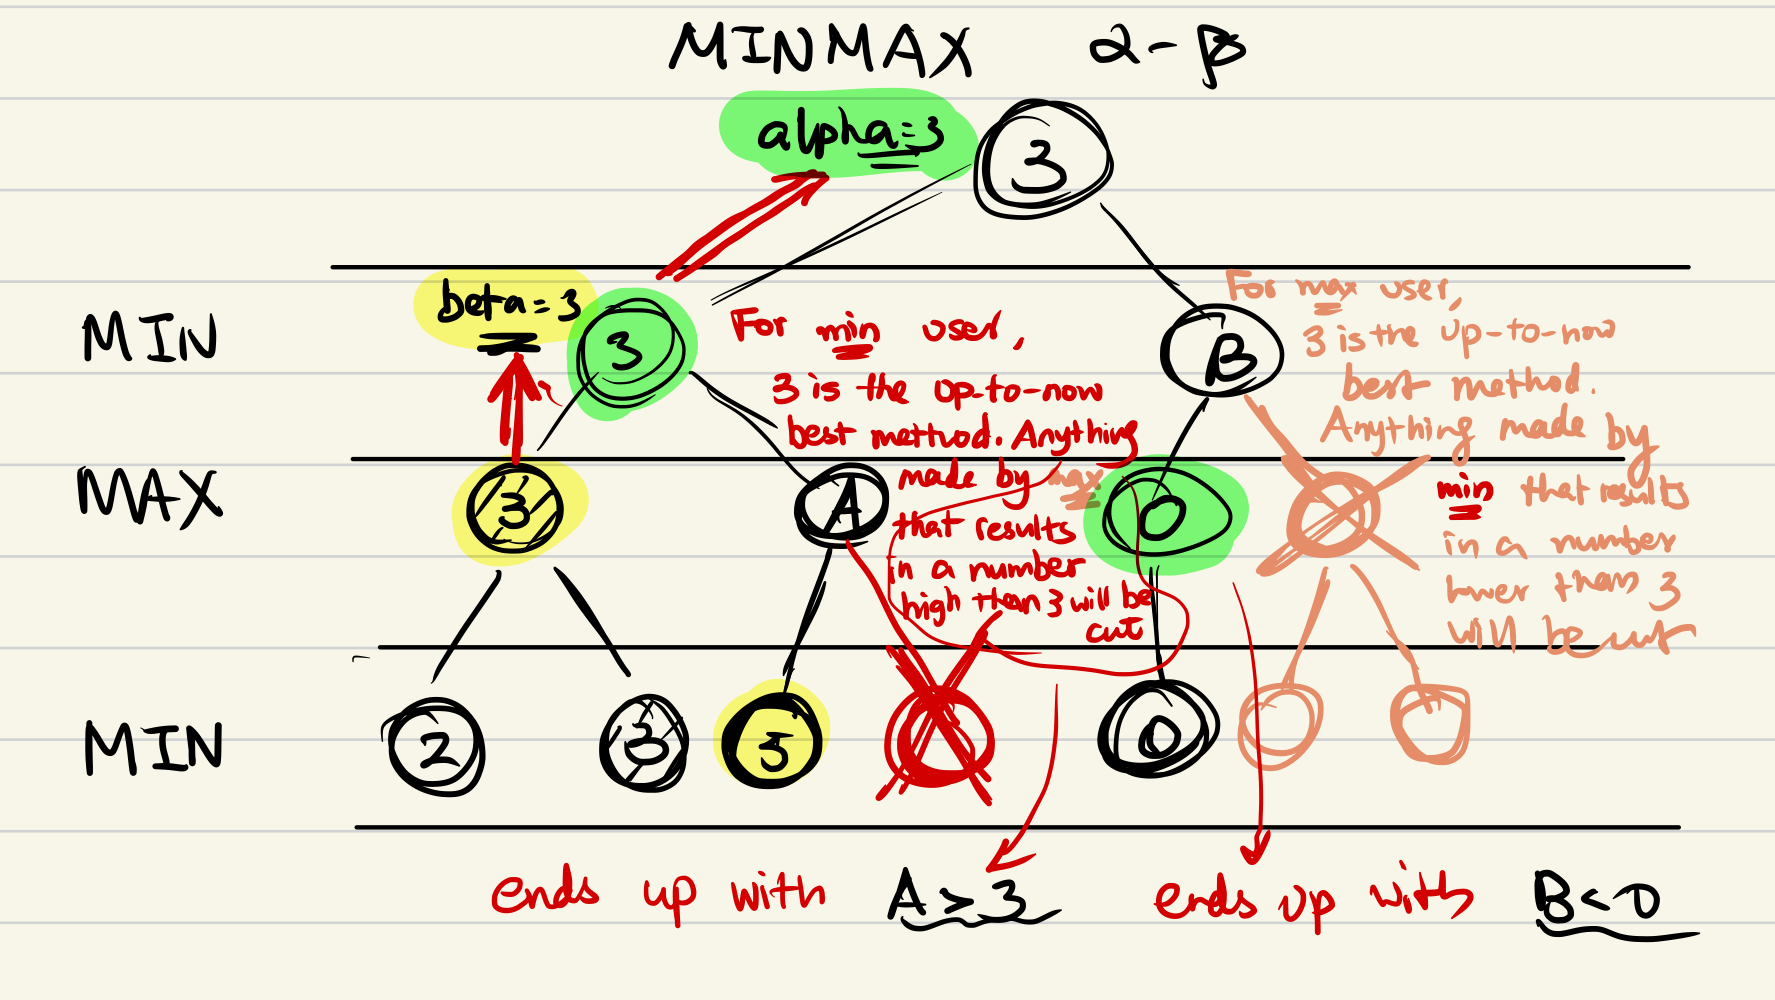 MINMAX α-β
alpha=3
3
MIN
beta=3
3
For min user,
3 is the up-to-now
best method. Anything
made by max
that results
in a number
high than 3 will be
cut
B
For max user,
3 is the up-to-now
best method.
Anything made by
min that results
in a number
lower than 3
will be cut
MAX
3
A
0
MIN
2
3
5
0
ends up with A > 3
ends up with B < 0